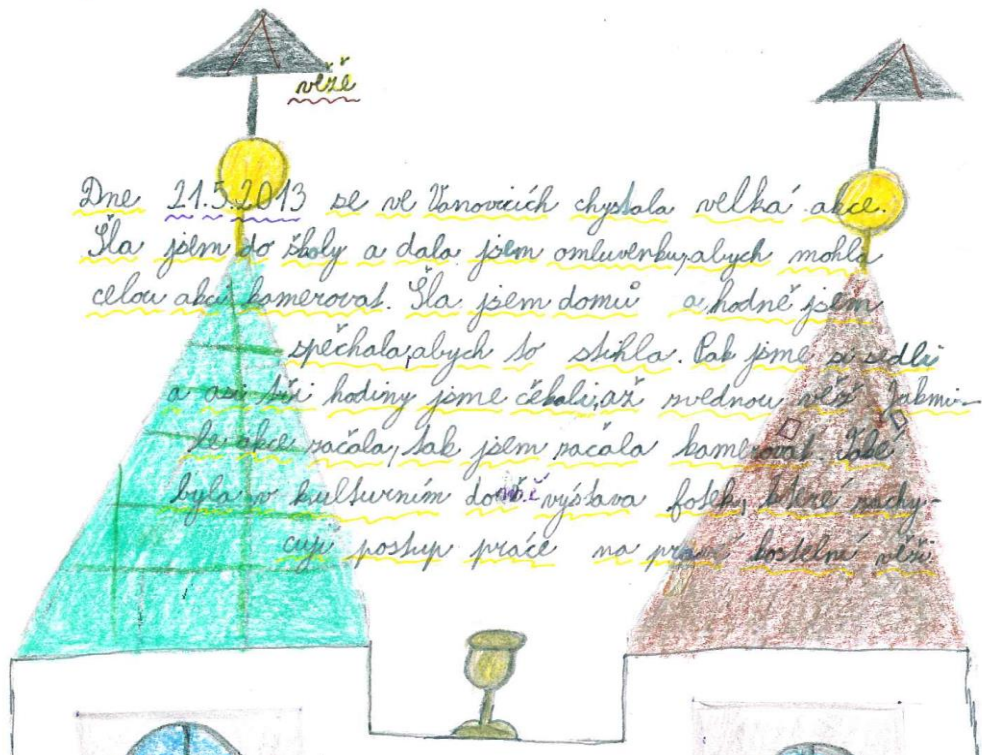 věže
Dne 21.5.2013 se ve Vanovicích chystala velká akce.
Šla jsem do školy a dala jsem omluvenku, abych mohla
celou akci kamerovat. Šla jsem domů a hodně jsem
spěchala, abych to stihla. Pak jsme si sedli
a asi tři hodiny jsme čekali, až zvednou věž. Jakmi-
le akce začala, tak jsem začala kamerovat. Také
byla v kulturním domě výstava fotek, které zachy-
cují postup práce na pravé kostelní věži.